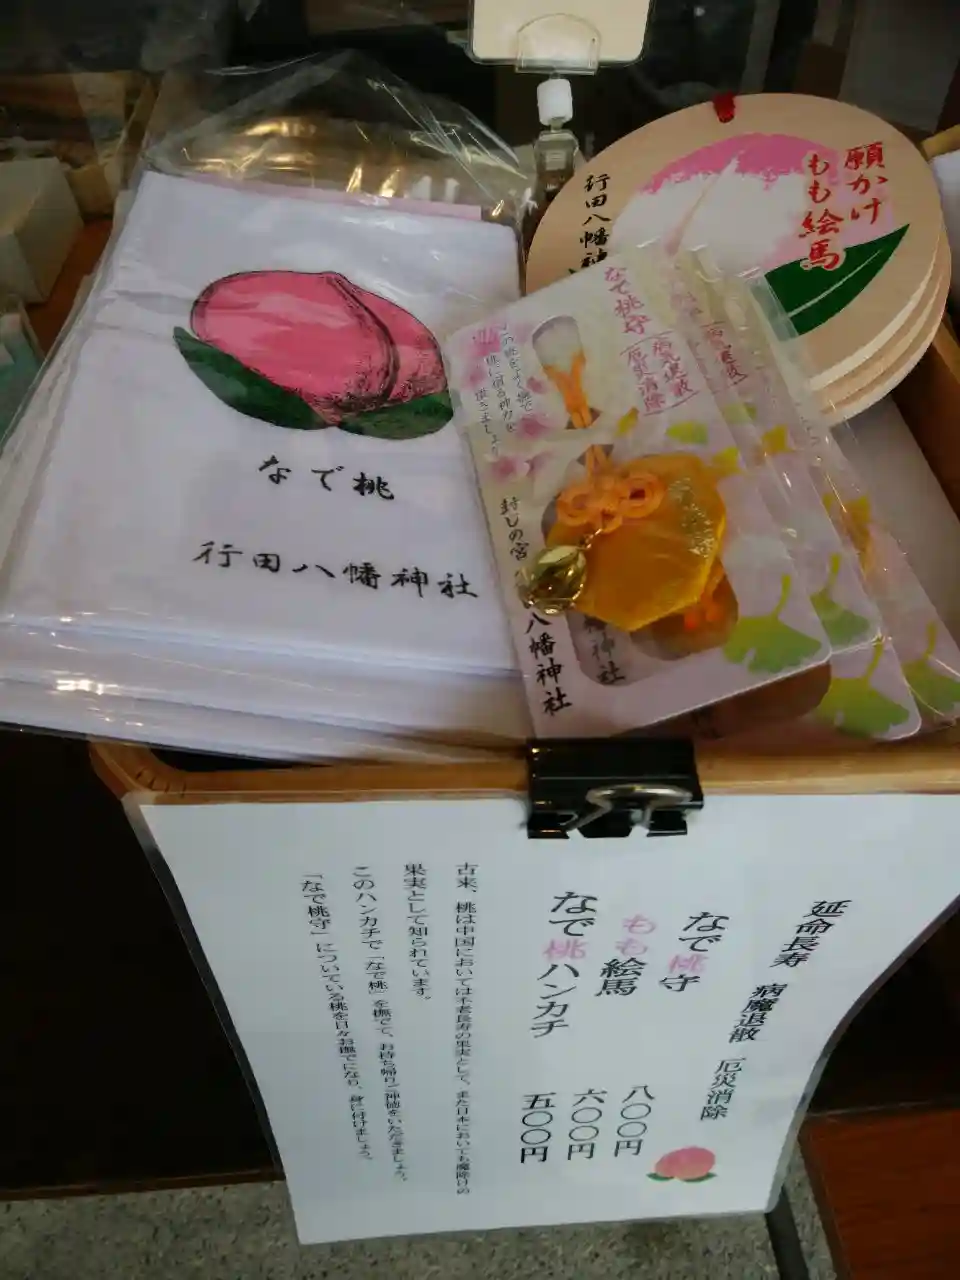 なで桃
行田八幡神社
願かけ
もも絵馬
行田八幡神
なで桃守
病気退散
厄災消除
この桃をよく撫で
桃に宿る神力を
戴きましょう
封じの宮
八幡神社
延命長寿　病魔退散　厄災消除
なで桃守　八〇〇円
もも絵馬　六〇〇円
なで桃ハンカチ　五〇〇円
古来、桃は中国においては不老長寿の果実として、また日本においても魔除けの
果実として知られています。
このハンカチで「なで桃」を撫でて、お持ち帰りご神徳をいただきましょう。
「なで桃守」についている桃を日々お撫でになり、身に付けましょう。